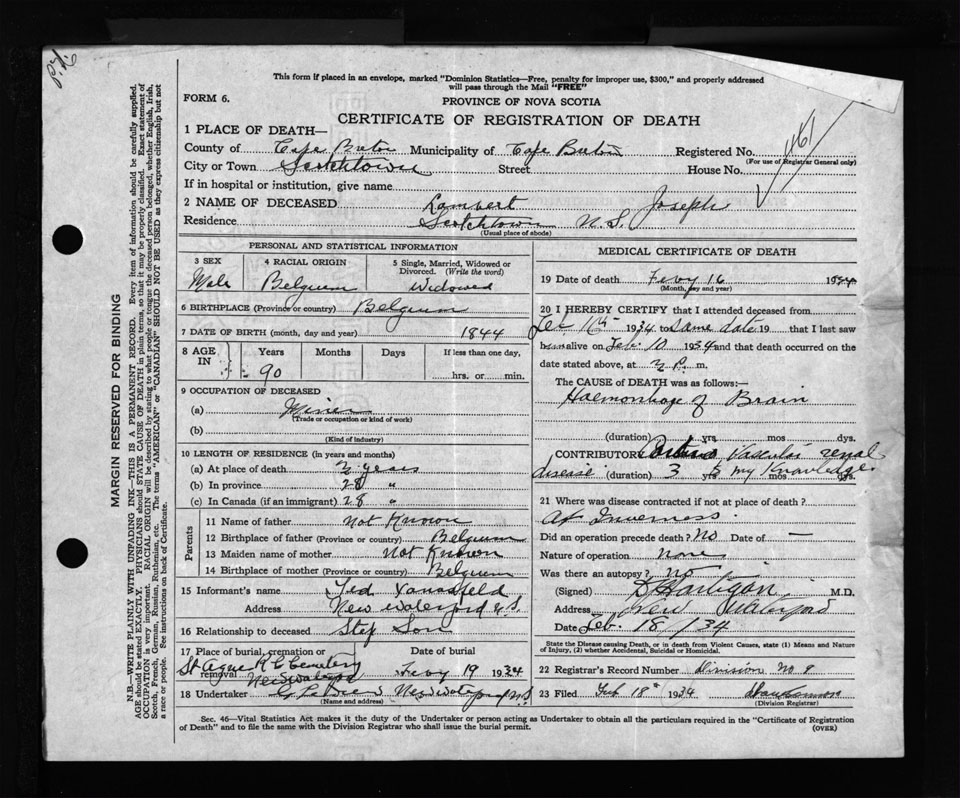 This form if placed in an envelope, marked "Dominion Statistics—Free, penalty for improper use, $300," and properly addressed
will pass through the Mail "FREE"
FORM 6.
PROVINCE OF NOVA SCOTIA
CERTIFICATE OF REGISTRATION OF DEATH
1 PLACE OF DEATH—
County of Cape Breton Municipality of Cape Breton Registered No.
(For use of Registrar General only)
City or Town Scotchtown Street House No.
If in hospital or institution, give name
2 NAME OF DECEASED Lambert Joseph
Residence Scotchtown N.S.
(Usual place of abode)
PERSONAL AND STATISTICAL INFORMATION
3 SEX Male
4 RACIAL ORIGIN Belgium
5 Single, Married, Widowed or Divorced. (Write the word) Widowed
6 BIRTHPLACE (Province or country) Belgium
7 DATE OF BIRTH (month, day and year) 1844
8 AGE IN Years Months Days If less than one day,
90 hrs. or min.
9 OCCUPATION OF DECEASED
(a) Miner
(Trade or occupation or kind of work)
(b)
(Kind of industry)
10 LENGTH OF RESIDENCE (in years and months)
(a) At place of death 2 years
(b) In province 28 "
(c) In Canada (if an immigrant) 28 "
Parents
11 Name of father Not Known
12 Birthplace of father (Province or country) Belgium
13 Maiden name of mother Not Known
14 Birthplace of mother (Province or country) Belgium
15 Informant's name Ted
Address New Waterford N.S.
16 Relationship to deceased Step Son
17 Place of burial, cremation or removal Date of burial
St Agnes R C Cemetery
New Waterford Feby 19 1934
18 Undertaker New Waterford N.S.
(Name and address)
MEDICAL CERTIFICATE OF DEATH
19 Date of death Feby 16 1934
(Month, day and year)
20 I HEREBY CERTIFY that I attended deceased from
Feb 1934 to same date 19 that I last saw
alive on Feb. 10 1934 and that death occurred on
date stated above, at m.
The CAUSE of DEATH was as follows:—
Haemorrhage of Brain
(duration) yrs. mos dys.
CONTRIBUTORY Vascular renal
disease (duration) 3 yrs mos dys. my Knowledge
21 Where was disease contracted if not at place of death?
At Inverness.
Did an operation precede death? No Date of —
Nature of operation None
Was there an autopsy? No
(Signed) D Hartigan M.D.
Address New Waterford
Date Feb. 18/34
State the Disease causing Death, or in death from Violent Causes, state (1) Means and Nature of Injury, (2) whether Accidental, Suicidal or Homicidal.
22 Registrar's Record Number Division No 8
23 Filed Feb 18th 1934
(Division Registrar)
Sec. 46—Vital Statistics Act makes it the duty of the Undertaker or person acting as Undertaker to obtain all the particulars required in the "Certificate of Registration
of Death" and to file the same with the Division Registrar who shall issue the burial permit.
(OVER)
MARGIN RESERVED FOR BINDING
N.B.—WRITE PLAINLY WITH UNFADING INK—THIS IS A PERMANENT RECORD. Every item of information should be carefully supplied.
AGE should be stated EXACTLY. PHYSICIANS should STATE CAUSE OF DEATH in plain terms, so that it may be properly classified. Exact statement of
OCCUPATION is very important. RACIAL ORIGIN will be described by stating to what people or tongue the deceased person belonged, whether English, Irish,
Scotch, French, German, Russian, Ruthenian, etc. The terms "AMERICAN" or "CANADIAN" SHOULD NOT BE USED as they express citizenship but not
a race or people. See instructions on back of Certificate.